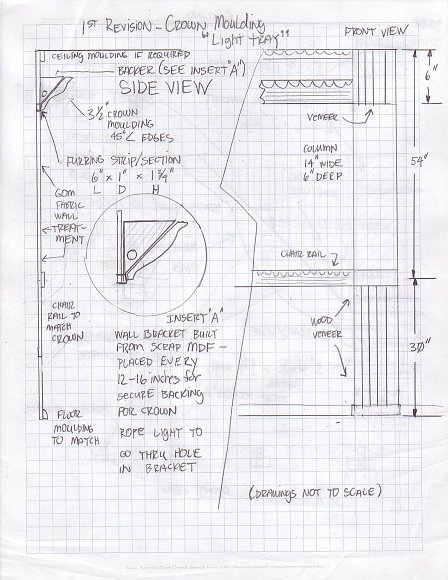 1ST REVISION - CROWN MOULDING
"LIGHT TRAY"
FRONT VIEW
CEILING MOULDING IF REQUIRED
BACKER (SEE INSERT "A")
SIDE VIEW
3 1/2" CROWN
MOULDING
45°∠ EDGES
FURRING STRIP/SECTION
6" x 1" x 1 3/4"
L D H
GOM
FABRIC
WALL
TREAT-
MENT
CHAIR
RAIL TO
MATCH
CROWN
FLOOR
MOULDING
TO MATCH
INSERT "A"
WALL BRACKET BUILT
FROM SCRAP MDF -
PLACED EVERY
12-16 INCHES for
SECURE BACKING
FOR CROWN
ROPE LIGHT TO
GO THRU HOLE
IN BRACKET
6"
VENEER
COLUMN
14" WIDE
6" DEEP
54"
CHAIR RAIL
WOOD
VENEER
30"
(DRAWINGS NOT TO SCALE)